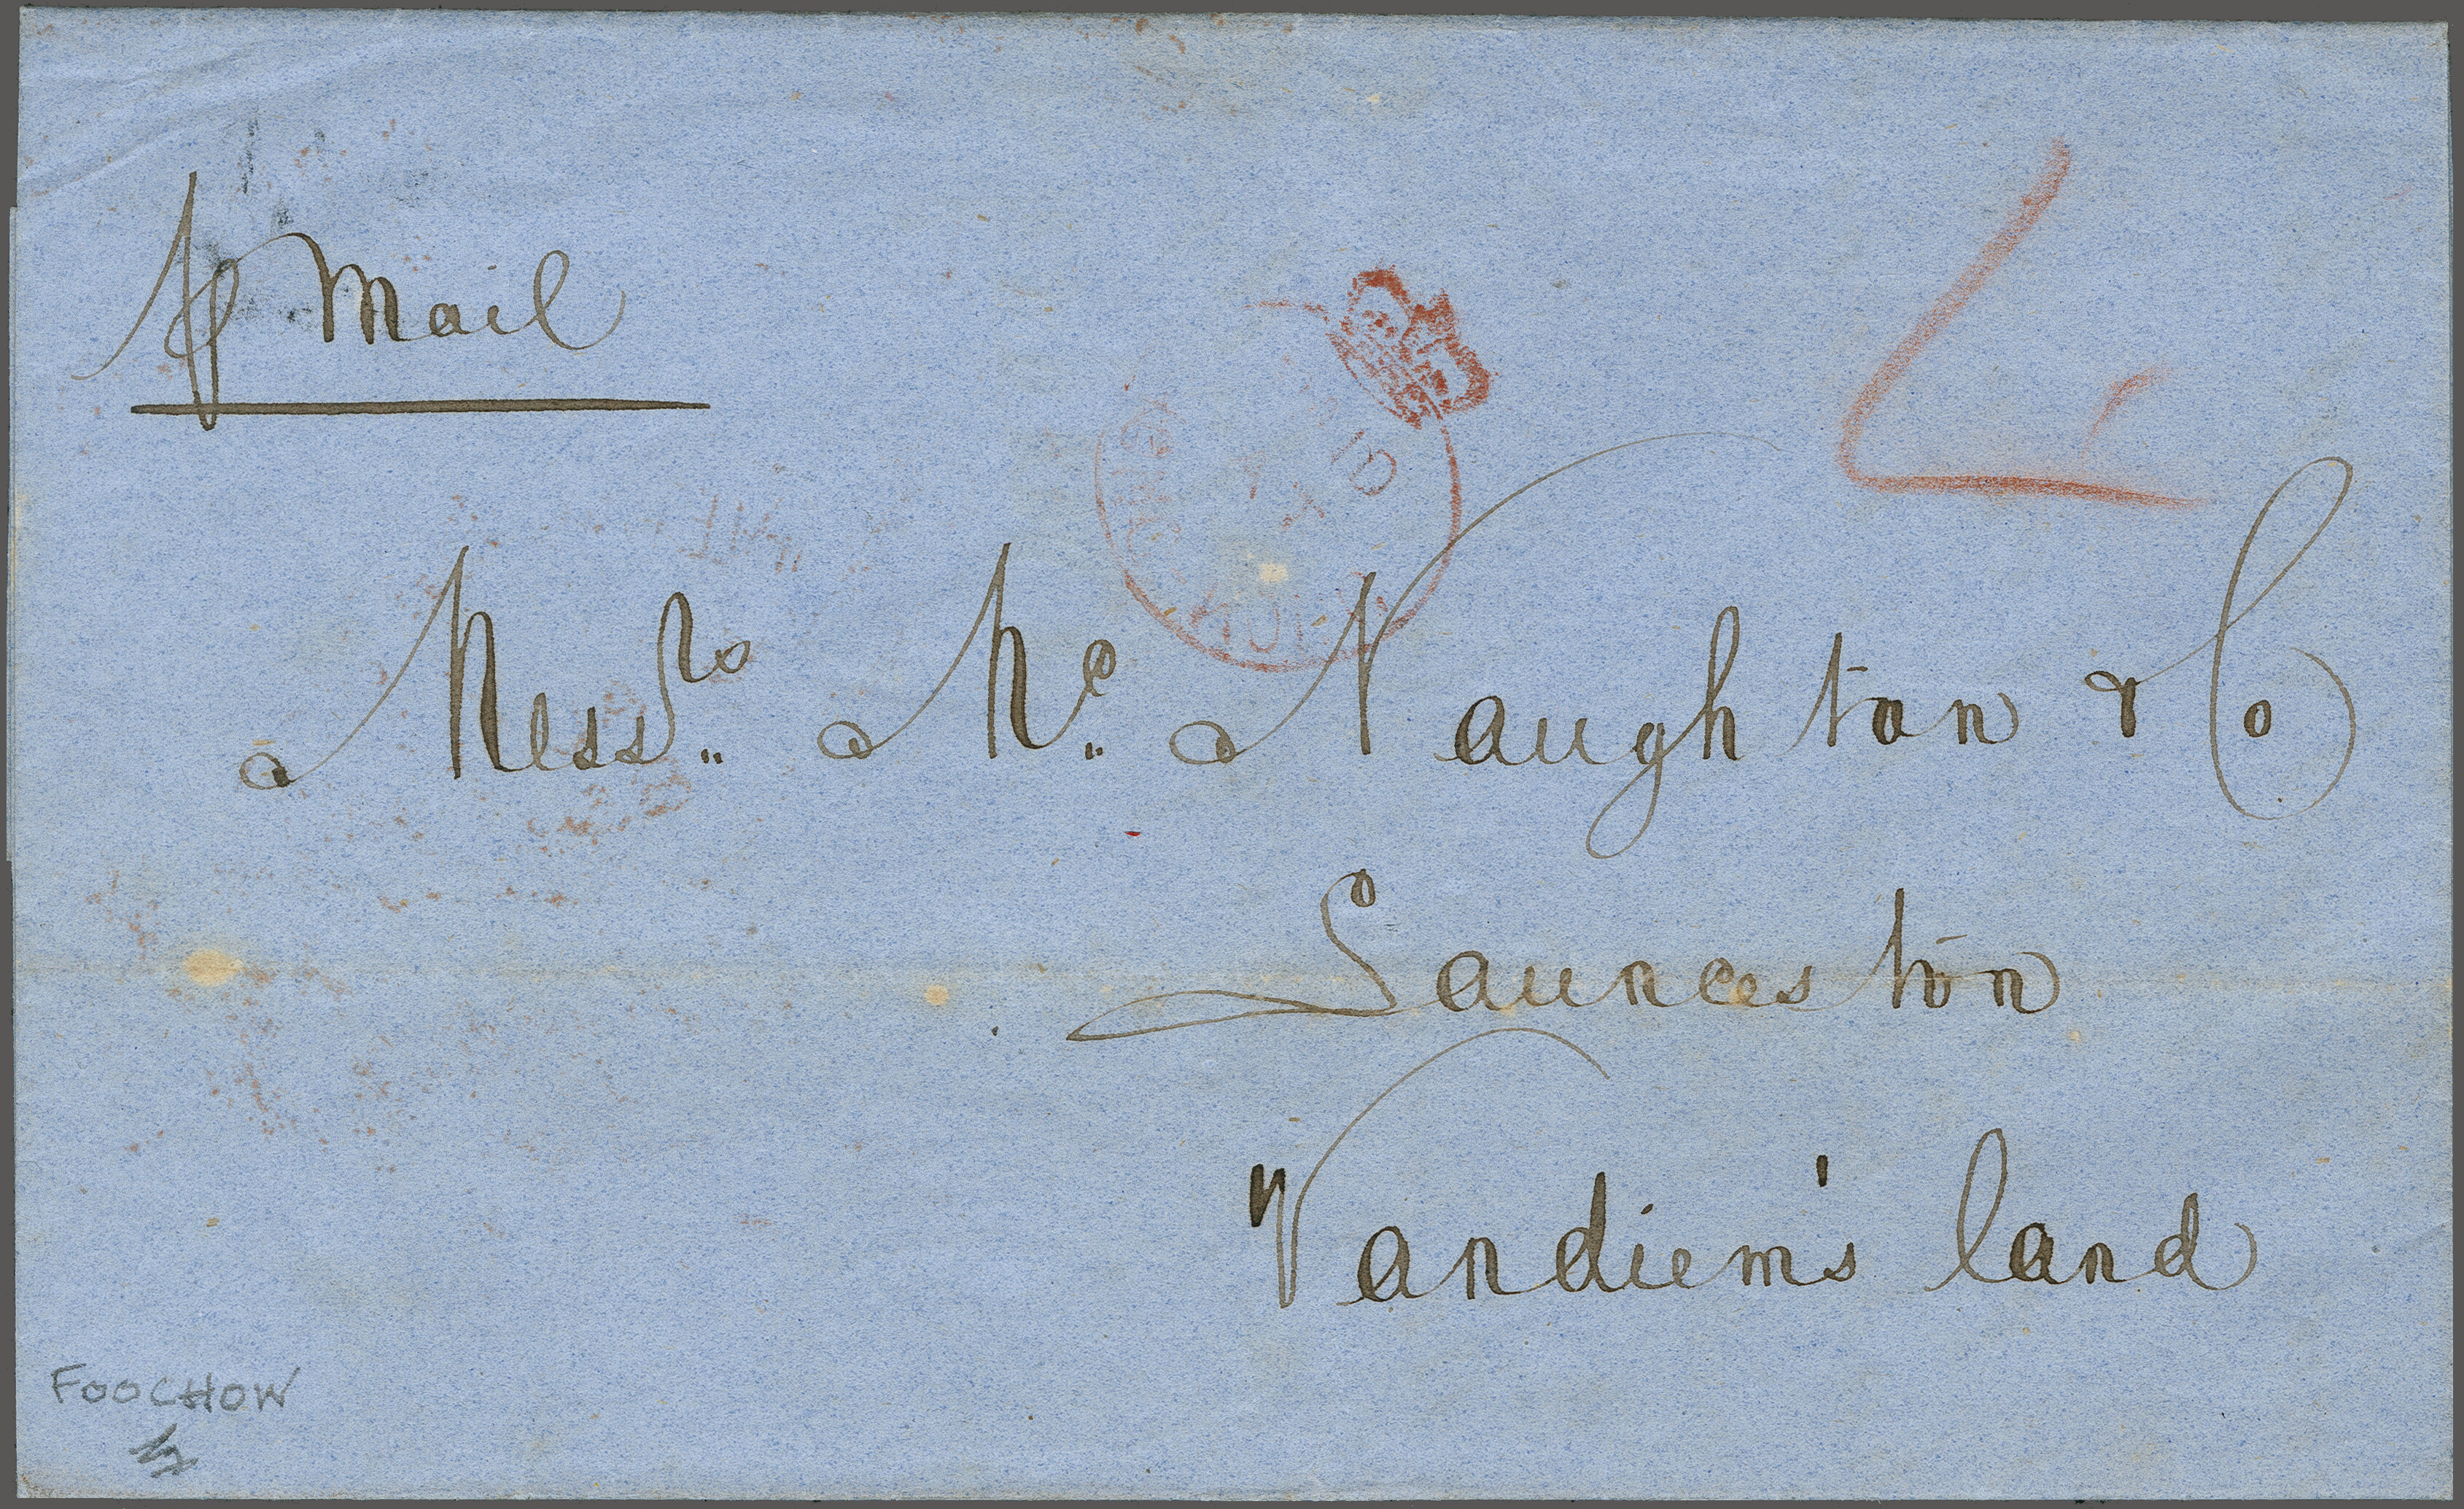 p Mail
4
10
Messrs. Mc. Naughton & Co
Launceston
Vandiem's land
FOOCHOW